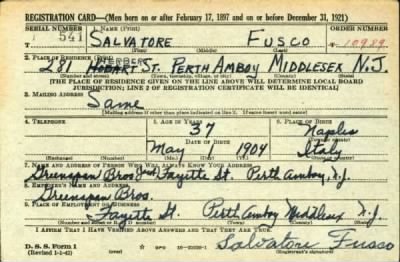 REGISTRATION CARD—(Men born on or after February 17, 1897 and on or before December 31, 1921)
SERIAL NUMBER 1. NAME (Print) ORDER NUMBER
541 SALVATORE FUSCO 10989
(First) (Middle) (Last)
2. PLACE OF RESIDENCE (Print)
281 HOBART ST. PERTH AMBOY MIDDLESEX N.J.
(Number and street) (Town, township, village, or city) (County) (State)
[THE PLACE OF RESIDENCE GIVEN ON THE LINE ABOVE WILL DETERMINE LOCAL BOARD
JURISDICTION; LINE 2 OF REGISTRATION CERTIFICATE WILL BE IDENTICAL]
3. MAILING ADDRESS
Same
[Mailing address if other than place indicated on line 2. If same insert word same]
4. TELEPHONE 5. AGE IN YEARS 6. PLACE OF BIRTH
37 Naples
DATE OF BIRTH (Town or county)
May 1904 Italy
(Exchange) (Number) (Mo.) (Day) (Yr.) (State or country)
7. NAME AND ADDRESS OF PERSON WHO WILL ALWAYS KNOW YOUR ADDRESS
Greenspan Bros Fayette St. Perth Amboy, N.J.
8. EMPLOYER'S NAME AND ADDRESS
Greenspan Bros.
9. PLACE OF EMPLOYMENT OR BUSINESS
Fayette St. Perth Amboy Middlesex N.J.
(Number and street or R. F. D. number) (Town) (County) (State)
I AFFIRM THAT I HAVE VERIFIED ABOVE ANSWERS AND THAT THEY ARE TRUE.
D. S. S. Form 1
(Revised 1-1-42) (over) Salvatore Fusco
(Registrant's signature)